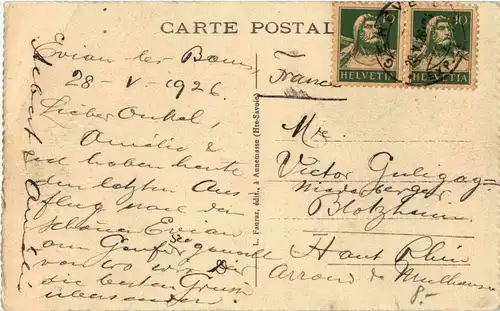 CARTE POSTALE
Evian les Bains
28-V-1926.
Lieber Onkel,
Amélie &
ich haben heute
den letzten Aus-
flug nach dem
schönen Evian
am Genfersee gemacht
von wo wir Dir
die besten Grüsse
übersenden.
Amélie
L. Fauraz, édit., à Annemasse (Hte-Savoie)
HELVETIA
10
HELVETIA
France
Mre
Victor
Blotzheim
Haut Rhin
Arrond de Mulhouse